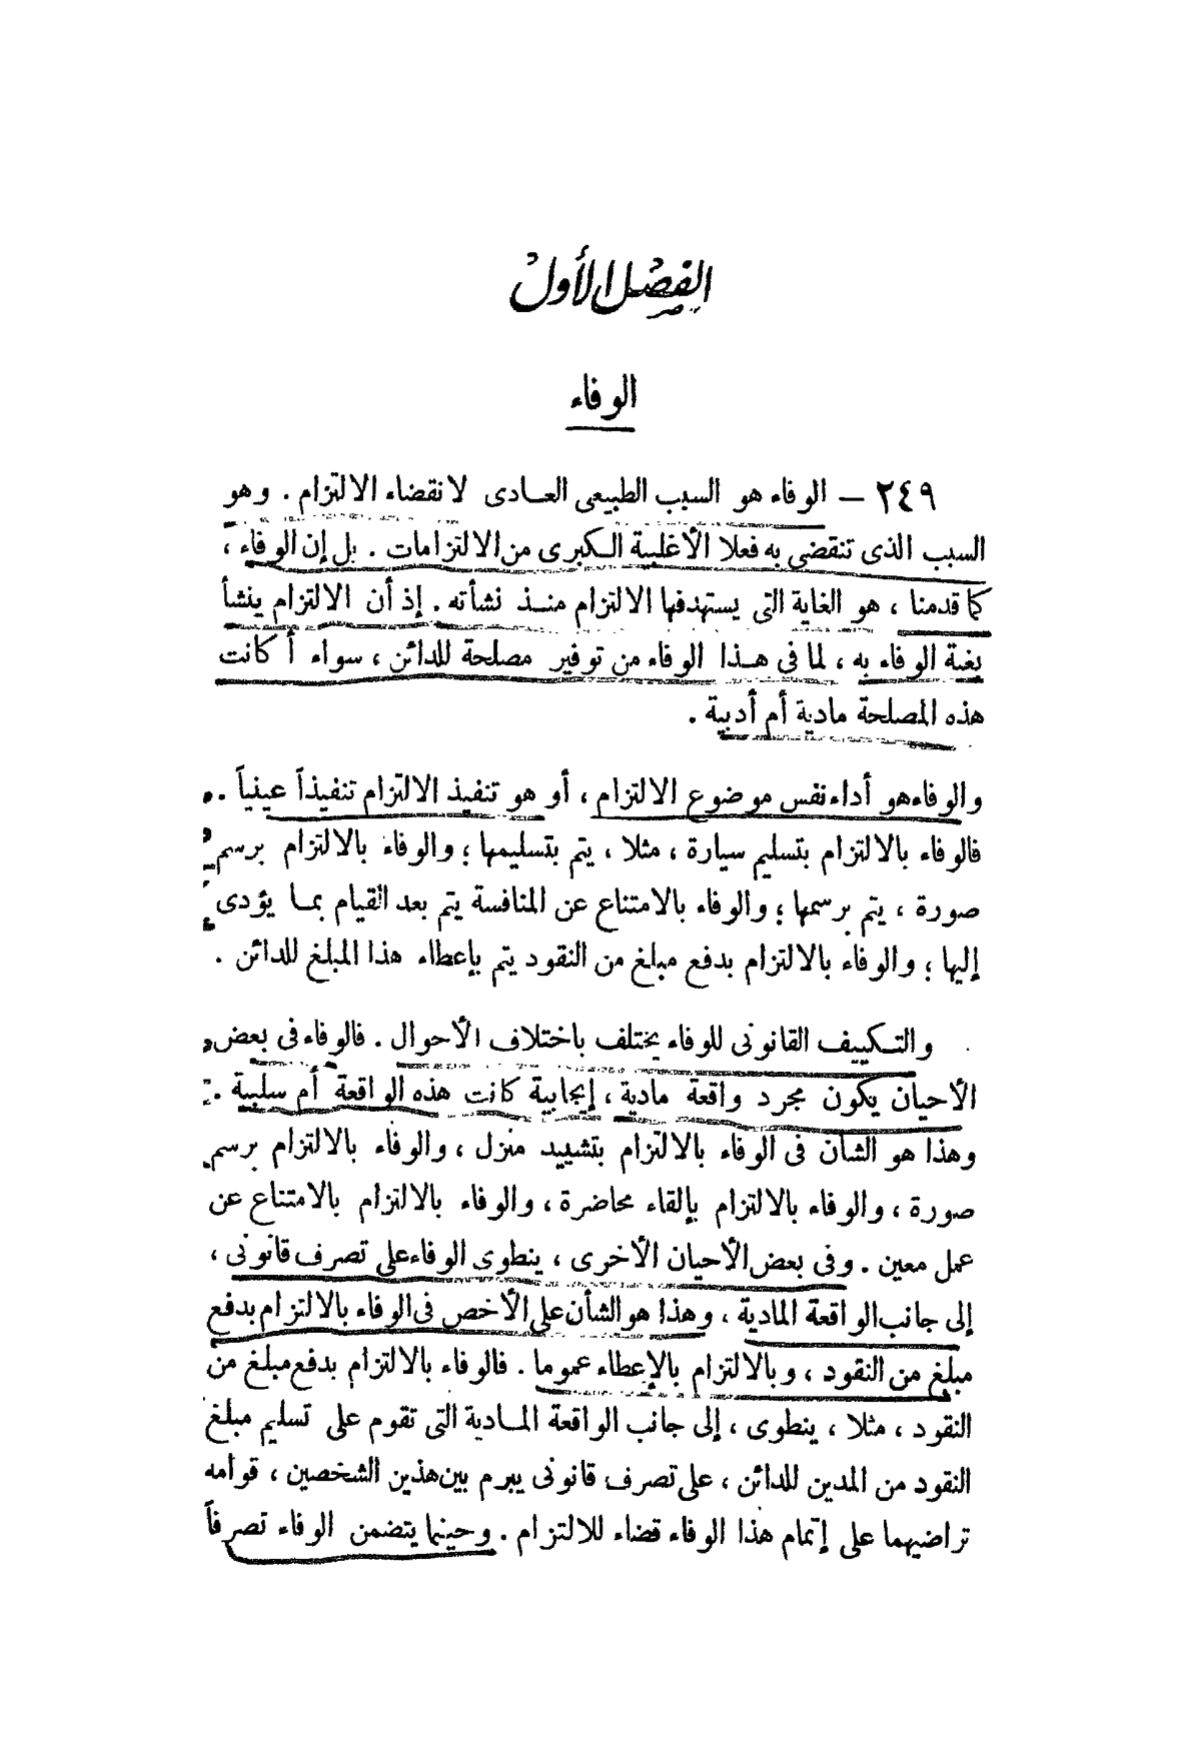 الفصل الأول
الوفاء
٢٤٩ — الوفاء هو السبب الطبيعى العـادى لانقضاء الالتزام . وهو
السبب الذى تنقضى به فعلا الأغلبية الـكبرى من الالتزامات . بل إن الوفاء ،
كما قدمنا ، هو الغاية التى يستهدفها الالتزام منـذ نشأته . إذ أن الالتزام ينشأ
بغية الوفاء به ، لما فى هـذا الوفاء من توفير مصلحة للدائن ، سواء أكانت
هذه المصلحة مادية أم أدبية .
والوفاء هو أداء نفس موضوع الالتزام ، أو هو تنفيذ الالتزام تنفيذاً عينياً .
فالوفاء بالالتزام بتسليم سيارة ، مثلا ، يتم بتسليمها ؛ والوفاء بالالتزام برسم
صورة ، يتم برسمها ؛ والوفاء بالامتناع عن المنافسة يتم بعد القيام بمـا يؤدى
إليها ؛ والوفاء بالالتزام بدفع مبلغ من النقود يتم بإعطاء هذا المبلغ للدائن .
والتـكييف القانونى للوفاء يختلف باختلاف الأحوال . فالوفاء فى بعض
الأحيان يكون مجرد واقعة مادية ، إيجابية كانت هذه الواقعة أم سلبية .
وهذا هو الشأن فى الوفاء بالالتزام بتشييد منزل ، والوفاء بالالتزام برسم
صورة ، والوفاء بالالتزام بإلقاء محاضرة ، والوفاء بالالتزام بالامتناع عن
عمل معين . وفى بعض الأحيان الأخرى ، ينطوى الوفاء على تصرف قانونى ،
إلى جانب الواقعة المادية ، وهذا هو الشأن على الأخص فى الوفاء بالالتزام بدفع
مبلغ من النقود ، وبالالتزام بالإعطاء عموما . فالوفاء بالالتزام بدفع مبلغ من
النقود ، مثلا ، ينطوى ، إلى جانب الواقعة المـادية التى تقوم على تسليم مبلغ
النقود من المدين للدائن ، على تصرف قانونى يبرم بين هذين الشخصين ، قوامه
تراضيهما على إتمام هذا الوفاء قضاء للالتزام . وحينما يتضمن الوفاء تصرفاً